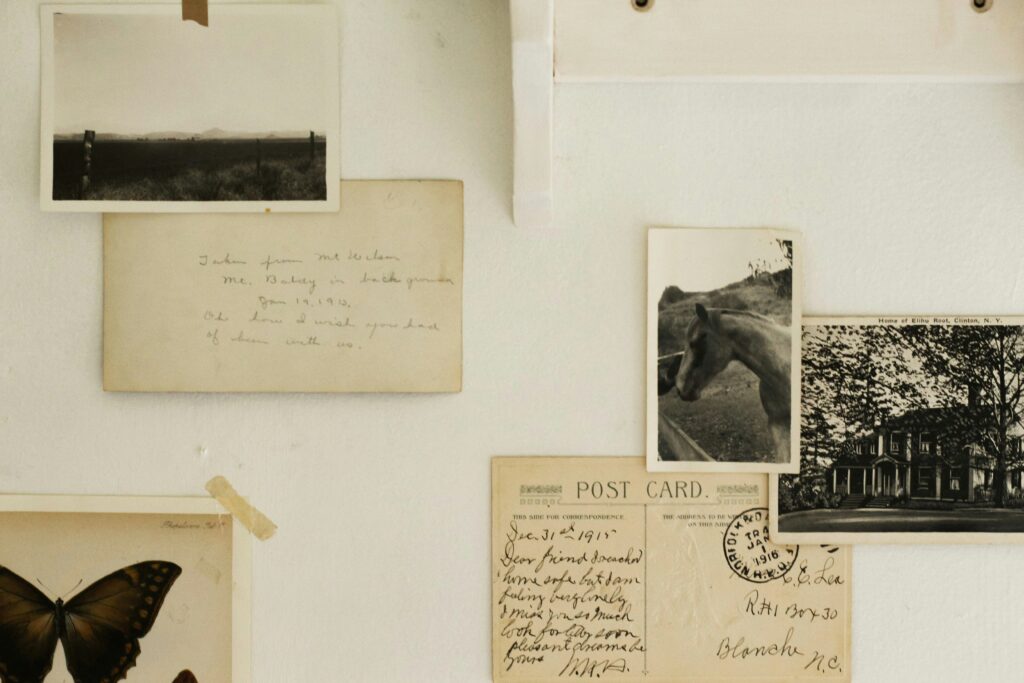 Taken from Mt Wilson
Mt. Baldy in back ground
Jan 19, 1913.
Oh how I wish you had
of been with us.
Home of Elihu Root, Clinton, N. Y.
POST CARD.
THIS SIDE FOR CORRESPONDENCE
THE ADDRESS TO BE
ON THIS SIDE
Dec. 31st 1915
Dear friend I reached
home safe but I am
feling very lonely
I miss you so much
look for
soon
pleasant dreams be
yours
NORFOLK
TRA
JAN
1
1916
R.P.O.
C. E. Lea
R#1 Box 30
Blanche
N.C.